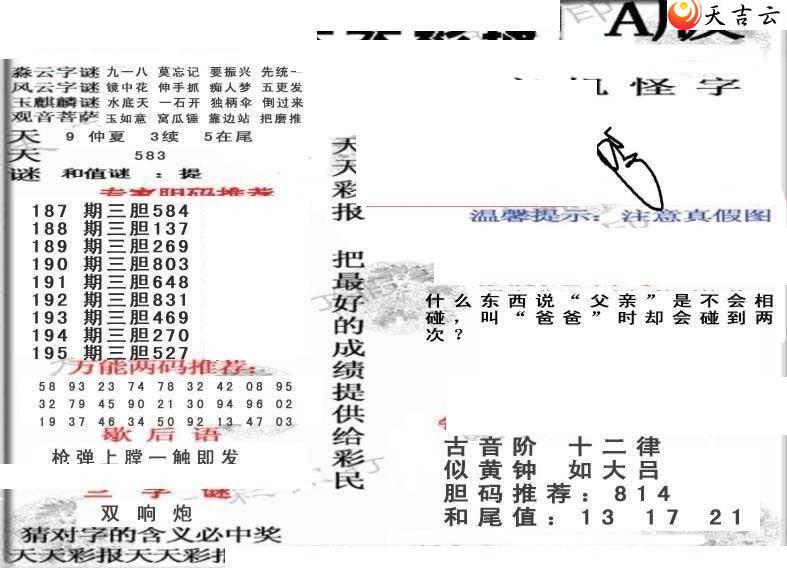 天吉云
淼云字谜 九一八 莫忘记 要振兴 先统一
风云字谜 镜中花 伸手抓 痴人梦 五更发
玉麒麟谜 水底天 一石开 独柄伞 倒过来
观音菩萨 玉如意 窝瓜锤 靠边站 把磨推
天 9 仲夏 3续 5在尾
天 583
谜 和值谜 ：提
专家胆码推荐
187 期三胆584
188 期三胆137
189 期三胆269
190 期三胆803
191 期三胆648
192 期三胆831
193 期三胆469
194 期三胆270
195 期三胆527
万能两码推荐：
58 93 23 74 78 32 42 08 95
32 79 45 90 21 30 94 96 02
19 37 46 34 50 92 13 47 03
歇后语
枪弹上膛一触即发
三字谜
双响炮
猜对字的含义必中奖
天天彩报天天彩报
天天彩报 把最好的成绩提供给彩民
机怪字
温馨提示：注意真假图
什么东西说“父亲”是不会相
碰，叫“爸爸”时却会碰到两
次？
古音阶 十二律
似黄钟 如大吕
胆码推荐：814
和尾值：13 17 21